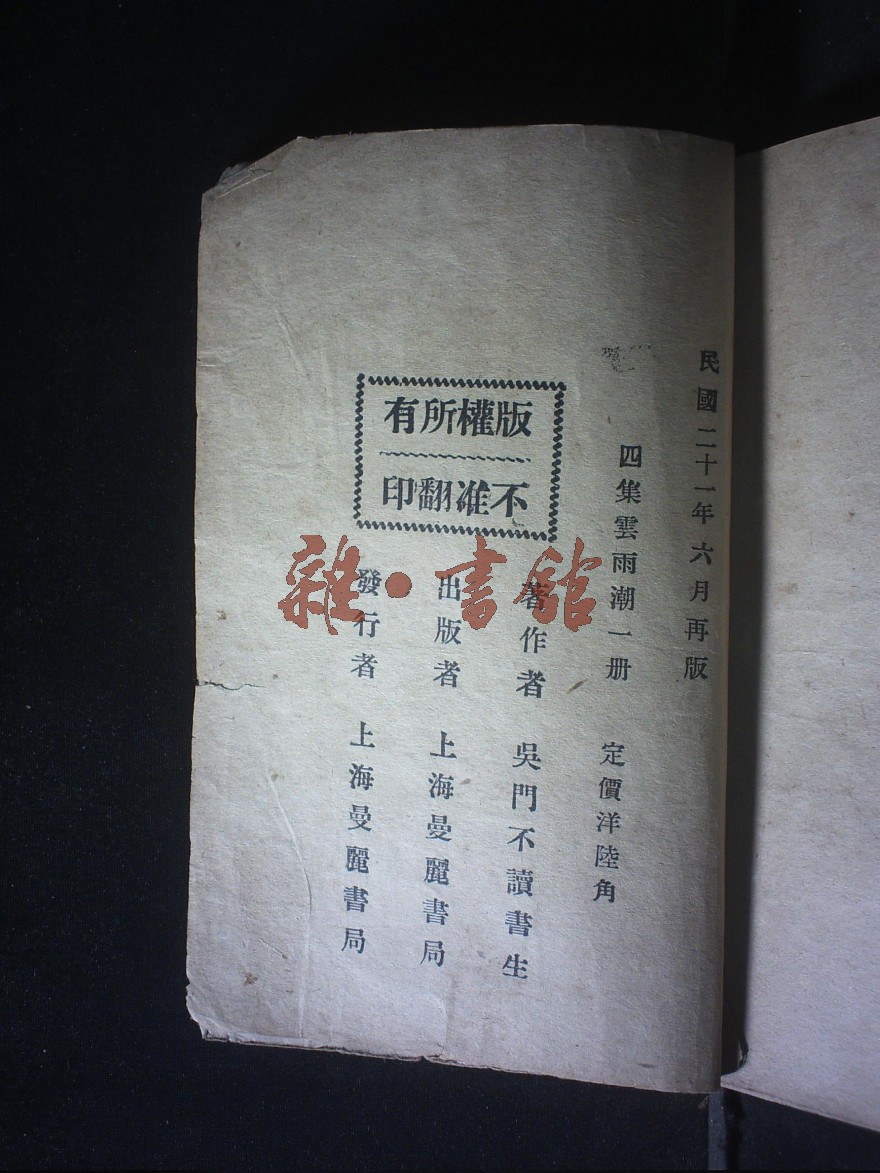 民國二十一年六月再版
四集雲雨潮一册　定價洋陸角
版權所有
不准翻印
著作者　吳門不讀書生
出版者　上海曼麗書局
發行者　上海曼麗書局
雜·書館